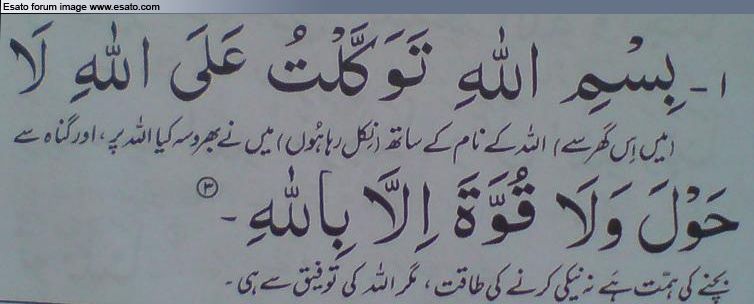 Esato forum image www.esato.com
۱- بِسْمِ اللهِ تَوَكَّلْتُ عَلَى اللهِ لَا
(میں اِس گھر سے) اللہ کے نام کے ساتھ (نِکل رہا ہُوں) میں نے بھروسہ کیا اللہ پر، اور گناہ سے
حَوْلَ وَلَا قُوَّةَ اِلَّا بِاللهِ - ③
بچنے کی ہمّت ہَے نہ نیکی کرنے کی طاقت، مگر اللہ کی توفیق سے ہی۔